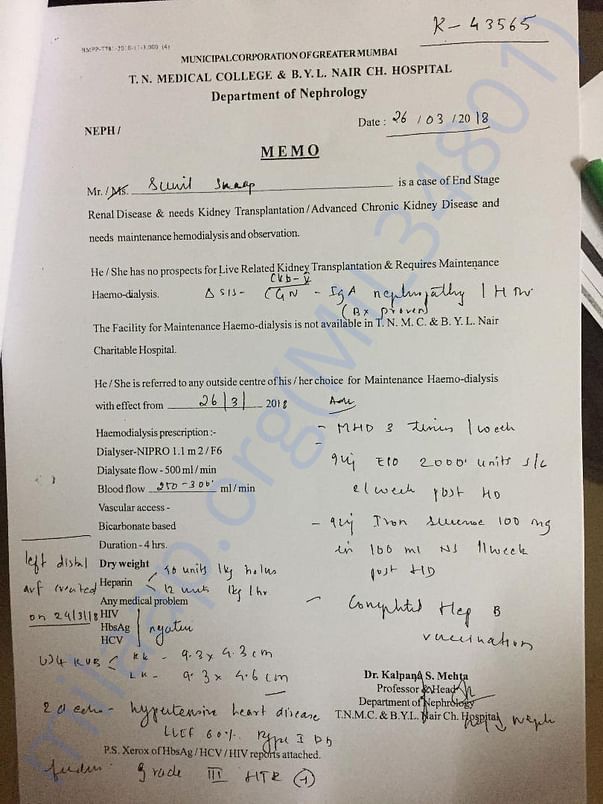 K - 43565
MUNICIPAL CORPORATION OF GREATER MUMBAI
T. N. MEDICAL COLLEGE & B.Y.L. NAIR CH. HOSPITAL
Department of Nephrology
NEPH /
Date : 26 / 03 / 2018
MEMO
Mr. / Ms. Sunil is a case of End Stage
Renal Disease & needs Kidney Transplantation / Advanced Chronic Kidney Disease and
needs maintenance hemodialysis and observation.
He / She has no prospects for Live Related Kidney Transplantation & Requires Maintenance
CKD-V
Haemo-dialysis. Δ SIS- CGN - IgA nephropathy / HTN
(Bx proven)
The Facility for Maintenance Haemo-dialysis is not available in T. N. M. C. & B. Y. L. Nair
Charitable Hospital.
He / She is referred to any outside centre of his / her choice for Maintenance Haemo-dialysis
with effect from 26/3/ 2018
Adv
Haemodialysis prescription :-
Dialyser-NIPRO 1.1 m 2 / F6
Dialysate flow - 500 ml / min
Blood flow 250-300 ml / min
Vascular access -
Bicarbonate based
Duration - 4 hrs.
- MHD 3 times / week
- Inj EPO 2000 units s/c
2/week post HD
- Inj Iron sucrose 100 mg
in 100 ml NS 1/week
post HD
- Completed Hep B
vaccination
left distal
avf created
on 24/3/18
Dry weight
Heparin
units /kg bolus
12 units /kg /hr
Any medical problem
HIV
HbsAg
HCV
negative
KUB
RK - 9.3 x 4.3 cm
LK - 9.3 x 4.6 cm
2d echo - hypertensive heart disease
LVEF 60% type I DD
Dr. Kalpana S. Mehta
Professor & Head
Department of Nephrology
T.N.M.C. & B.Y.L. Nair Ch. Hospital
P.S. Xerox of HbsAg / HCV / HIV reports attached.
fundus - grade III HTR (+)
milaap.org(MIL34801)